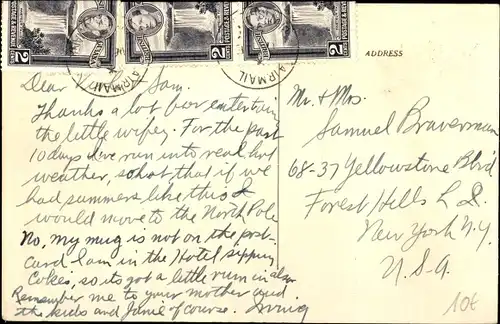 2 POSTAGE & REVENUE 2 POSTAGE & REVENUE 2
AIRMAIL AIRMAIL
ADDRESS
Dear V Sam.
Thanks a lot for entertain
the little wifey. For the past
10 days I've run into real hot
weather, so hot that if we
had summers like this I
would move to the North Pole
No, my mug is not on the post-
card I am in the Hotel sipping
Cokes, so its got a little rum in also
Remember me to your mother and
the kids and Janie of course. Irving
Mr. & Mrs.
Samuel Braverman
68-37 Yellowstone Blvd
Forest Hills L.I.
New York N.Y.
U.S.A.
10€